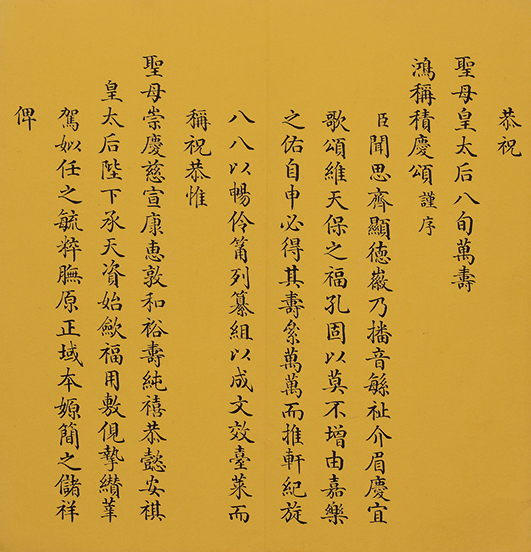 恭祝
聖母皇太后八旬萬壽
鴻稱積慶頌謹序
臣聞思齊顯德徽乃播音緐祉介眉慶宜
歌頌維天保之福孔固以莫不增由嘉樂
之佑自申必得其壽絫萬萬而推軒紀旋
八八以暢伶筩列纂組以成文效臺萊而
稱祝恭惟
聖母崇慶慈宣康惠敦和裕壽純禧恭懿安祺
皇太后陛下承天資始歛福用敷俔摯纘莘
駕姒任之毓粹膴原正域本嫄簡之儲祥
俾